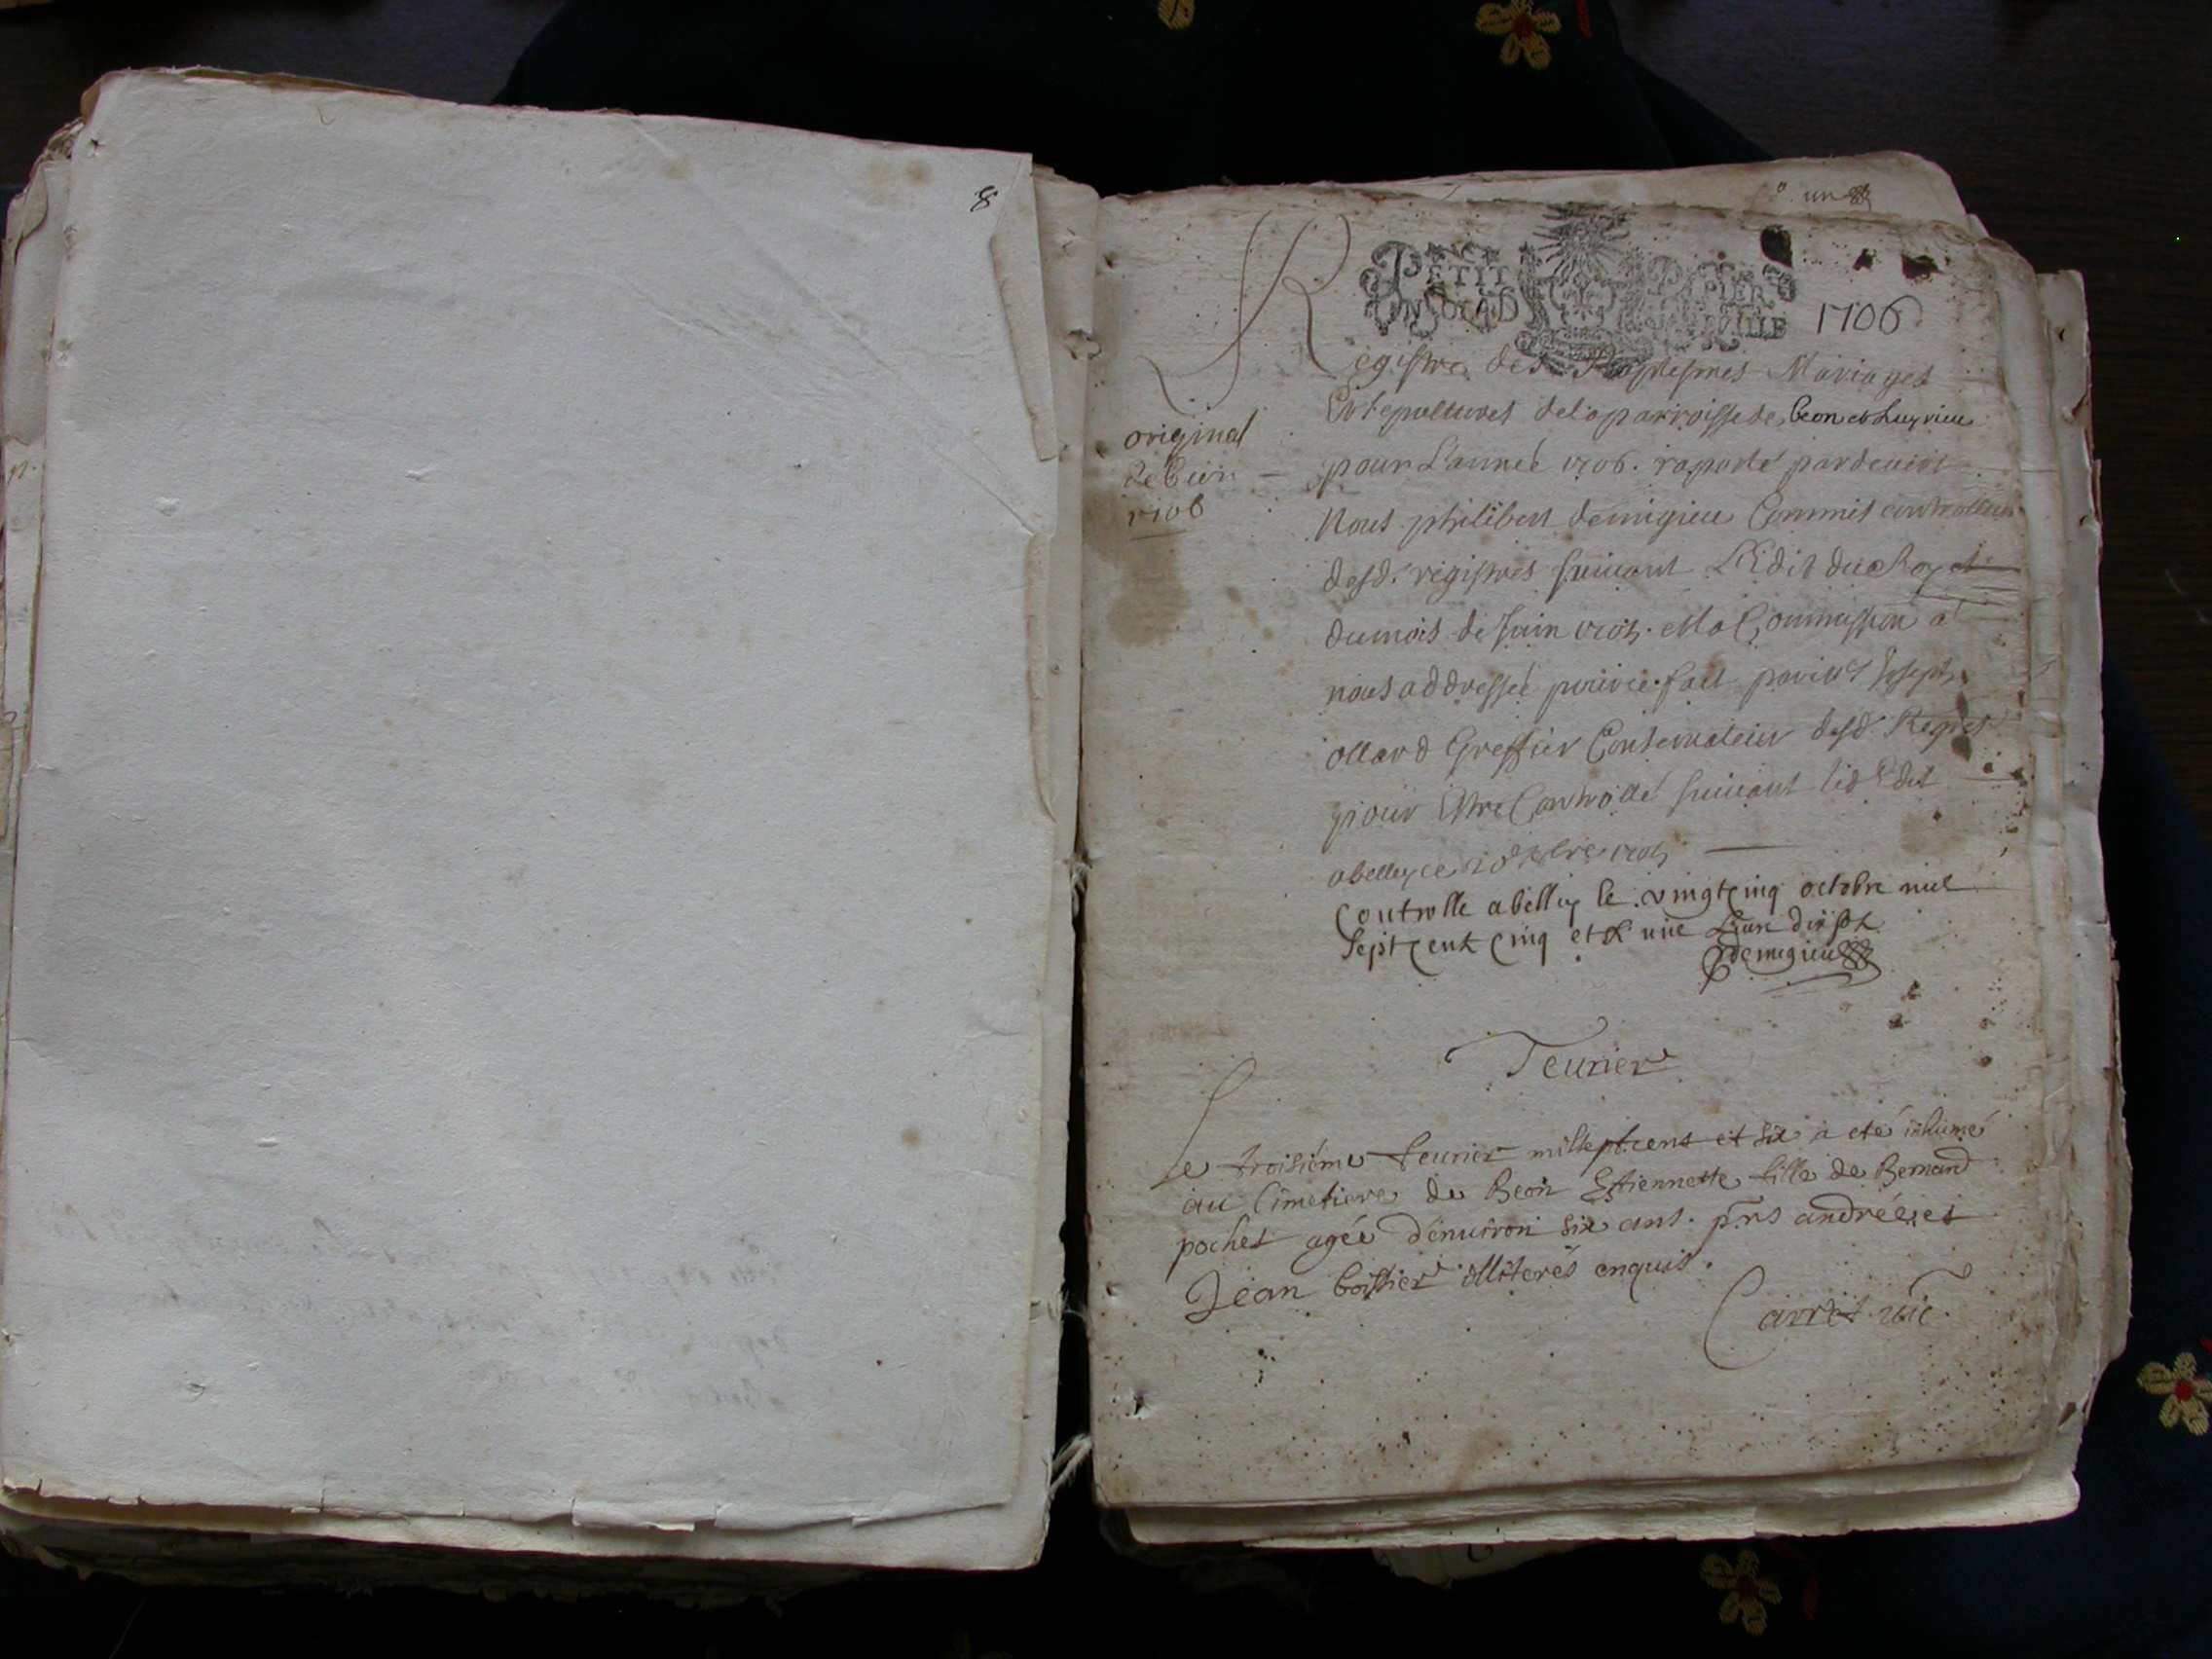 8
un
PETIT PAPIER
UN SOL 4D
1706
Registre des Baptesmes Mariages
Et sepultures de la parroisse de beon et Luyrieu
original
de beon
1706
pour L'année 1706. raporté pardevant
Nous philibert demigieu Commis controlleur
desd. registres suivant L'Edit du Roy et
du mois de Juin 1705. et la Commission a
nous addressée pour ce fait par Mr Joseph
ollard Greffier Conservateur desd. Regres
pour Estre Controllé suivant led Edit
a belley ce 1705
Controlle a belley le vingt cinq octobre mil
sept cent cinq et
demigieu
Feurier
Le troisiéme feurier mil sept cent et six a eté inhumé
au Cimetiere de Beon Estiennette fille de Bernard
pochet agée d'enuiron six ans. pnts andré et
Jean boissier illiterés enquis.
Carret vic.